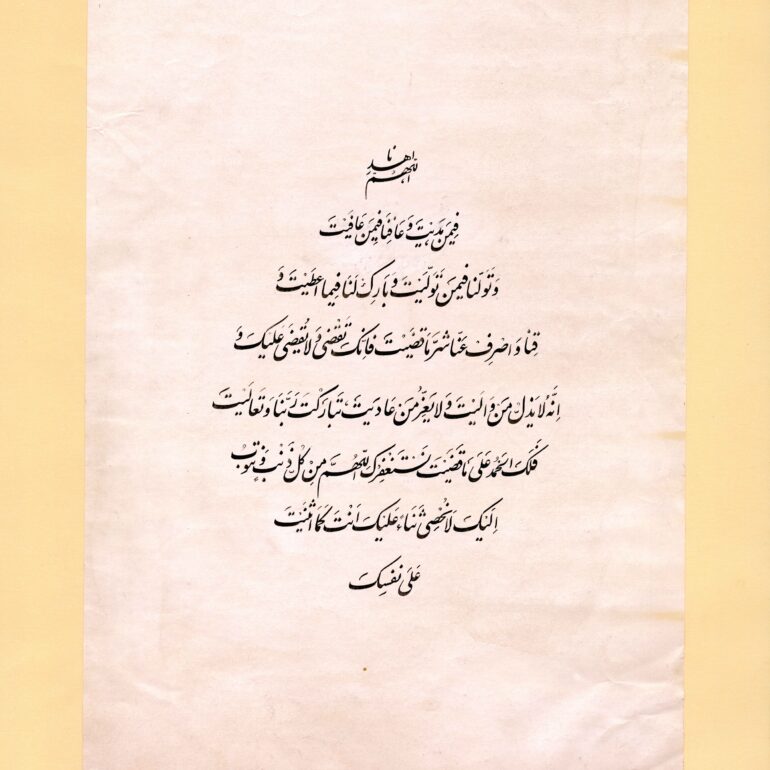 اللهم اهدنا
فِيمَن هَدَيتَ وَ عَافِنَا فِيمَن عَافَيتَ
وَ تَوَلَّنا فيمَن تَوَلَّيتَ وَ بَارِك لَنَا فيما اعطَيتَ وَ
قِنَا وَ اصرِف عَنَّا شَرَّ مَا قَضَيتَ فَانَّكَ تَقضى وَ لَا يُقضَى عَلَيكَ وَ
اِنَّهُ لا يَذِلُّ مَن وَالَيتَ وَ لا يَعِزُّ مَن عَادَيتَ تَبَارَكتَ رَبَّنَا وَ تَعَالَيتَ
فَلَكَ الحَمدُ عَلَى مَا قَضَيتَ نَستَغفِرُكَ اللّهُمَّ مِن كُلِّ ذَنبٍ وَ نَتُوبُ
اِلَيكَ لَا نُحصِى ثَنَاءً عَلَيكَ اَنتَ كَمَا اثنَيتَ
عَلَى نَفسِكَ